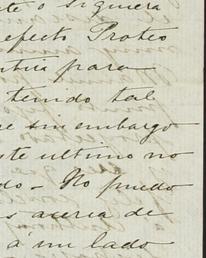 te o siquiera
efecto Proteo
para
tenido tal
e sin embargo
ste ultimo no
do - No puedo
s acerca de
á un lado